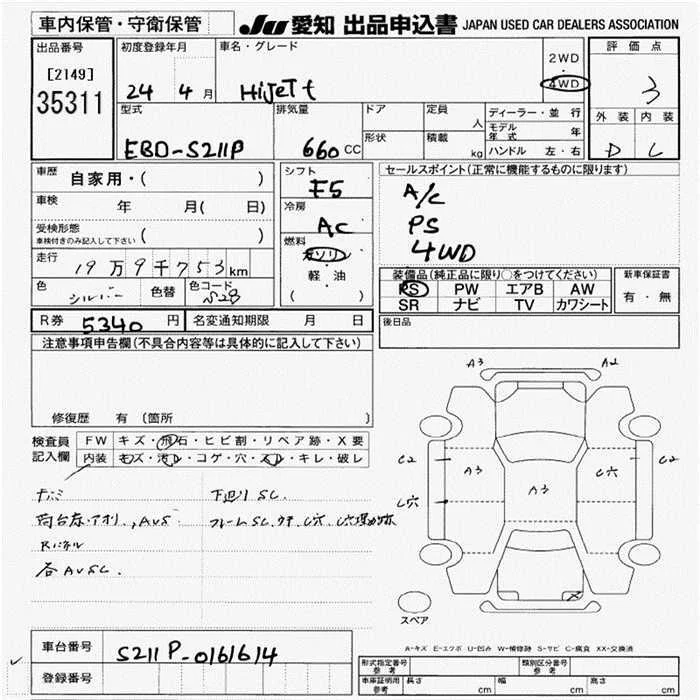 車内保管・守衛保管 JU 愛知 出品申込書 JAPAN USED CAR DEALERS ASSOCIATION
出品番号 初度登録年月 車名・グレード 2WD ・ 4WD 評価点
[2149]
35311
24 4月 HiJeTt 3
型式 排気量 ドア 定員 人 ディーラー・並行 外装 内装
形状 積載 kg モデル年式 年
EBD-S211P 660 CC ハンドル 左・右 D C
車歴 自家用・( ) シフト F5 セールスポイント(正常に機能するものに限ります)
車検 年 月( 日) 冷房 AC A/C
受検形態 車検付きのみ記入して下さい ( ) PS
燃料 ガソリン 4WD
走行 19万9千753km 軽・油
( )
色 シルバー 色替 色コード S28
装備品(純正品に限り○をつけてください) 新車保証書
PS PW エアB AW 有・無
SR ナビ TV カワシート
R券 5340 円 名変通知期限 月 日 後日品
注意事項申告欄(不具合内容等は具体的に記入して下さい)
修復歴 有 (箇所 )
検査員記入欄 FW キズ・飛石・ヒビ割・リペア跡・X要
内装 キズ・汚レ・コゲ・穴・スレ・キレ・破レ
下廻り SC.
荷台床・アオリ,AUS フレームSC.サケ C穴
Rパネル
各AUSC.
A3 A2
C2 A3 C穴 C2
A3
C穴
スペア
A-キズ E-エクボ U-凹み W-補修跡 S-サビ C-腐食 XX-交換済
車台番号 S211P-0161614
登録番号
形式指定番号 参考 類別区分番号 参考
車庫証明用 参考 長さ cm 幅 cm 高さ cm